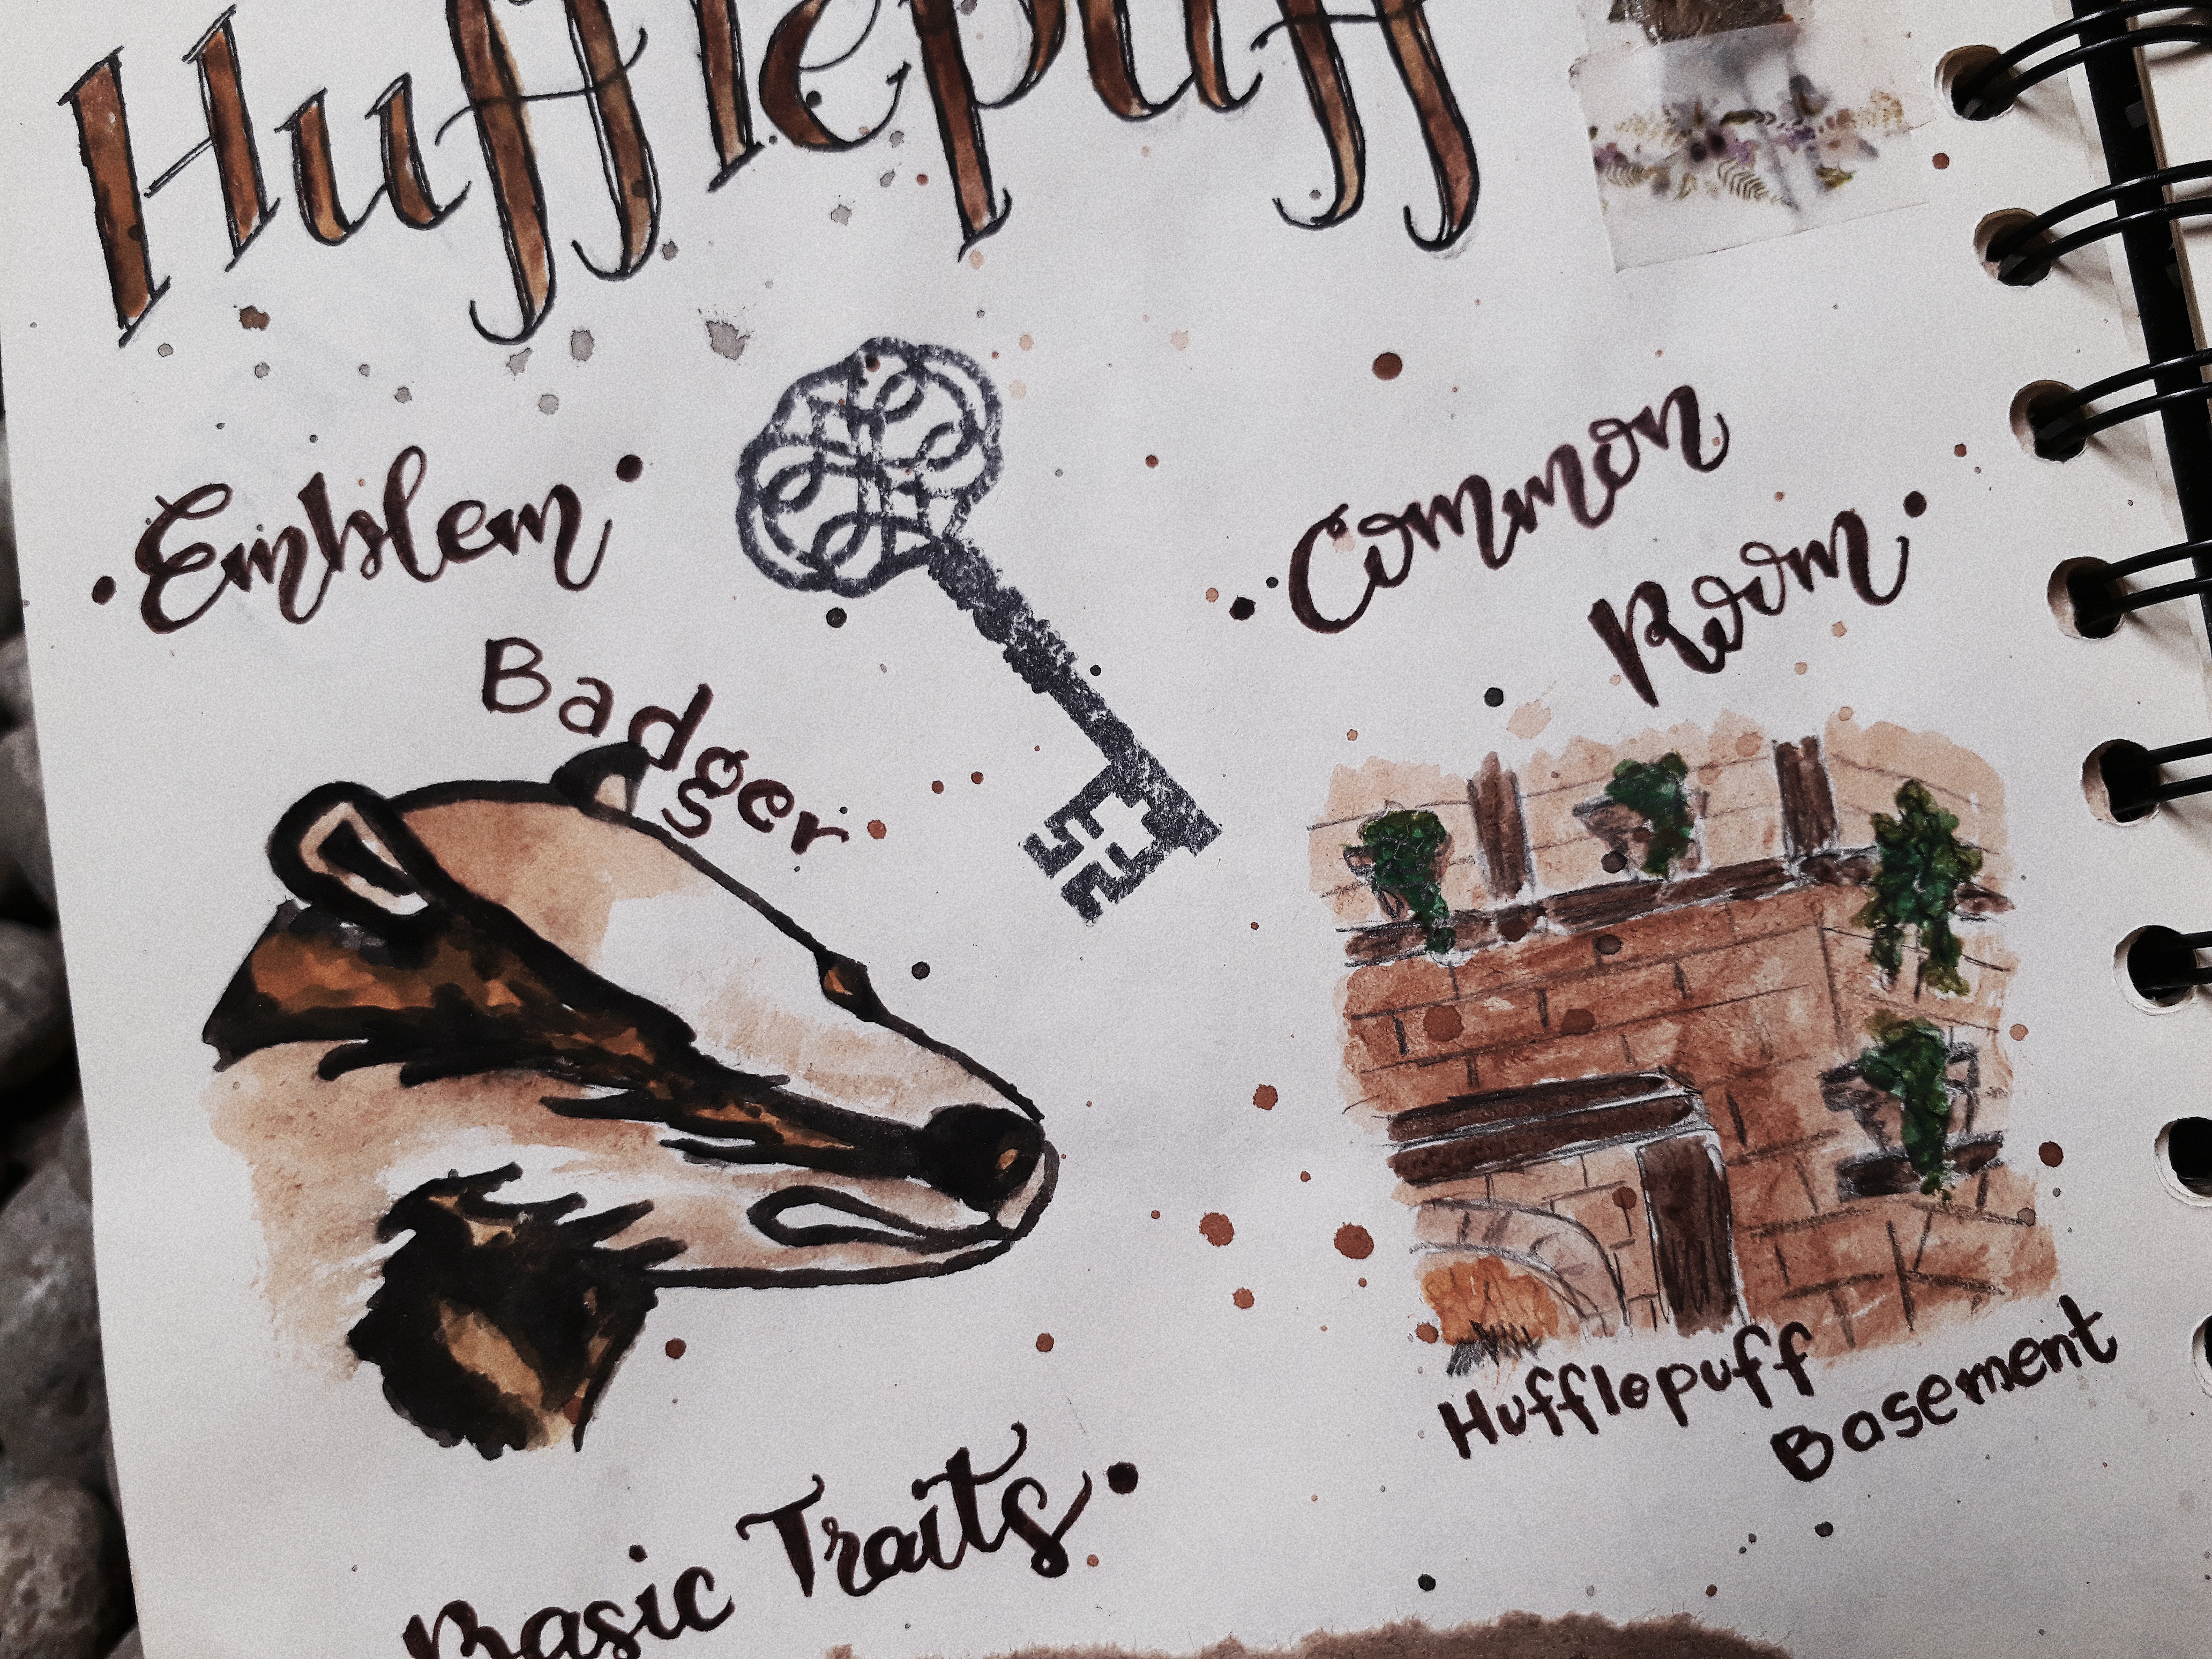 Hufflepuff
• Emblem •
Badger
• Common
Room •
Hufflepuff
Basement
Basic Traits •